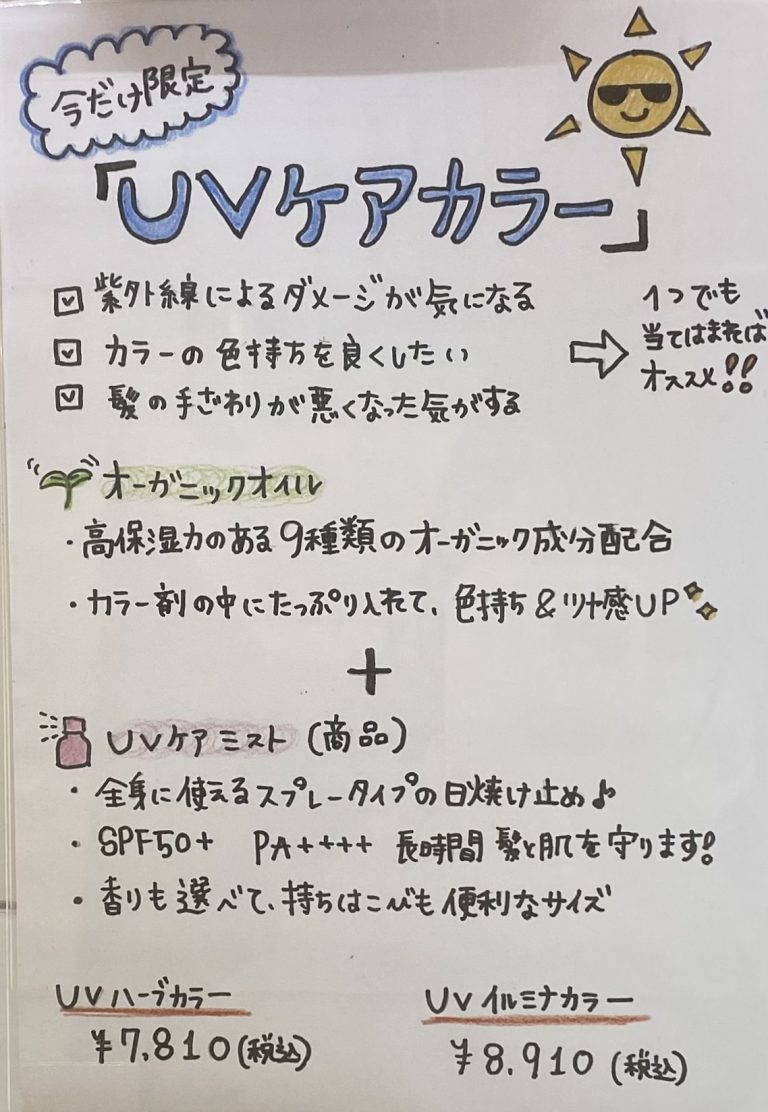 今だけ限定
「UVケアカラー」
紫外線によるダメージが気になる
カラーの色持ちを良くしたい
髪の手ざわりが悪くなった気がする
1つでも
当てはまれば
オススメ!!
オーガニックオイル
・高保湿力のある9種類のオーガニック成分配合
・カラー剤の中にたっぷり入れて、色持ち&ツヤ感UP
+
UVケアミスト(商品)
・全身に使えるスプレータイプの日焼け止め♪
・SPF50+ PA++++ 長時間 髪と肌を守ります!
・香りも選べて、持ちはこびも便利なサイズ
UVハーブカラー
¥7.810(税込)
UVイルミナカラー
¥8.910(税込)